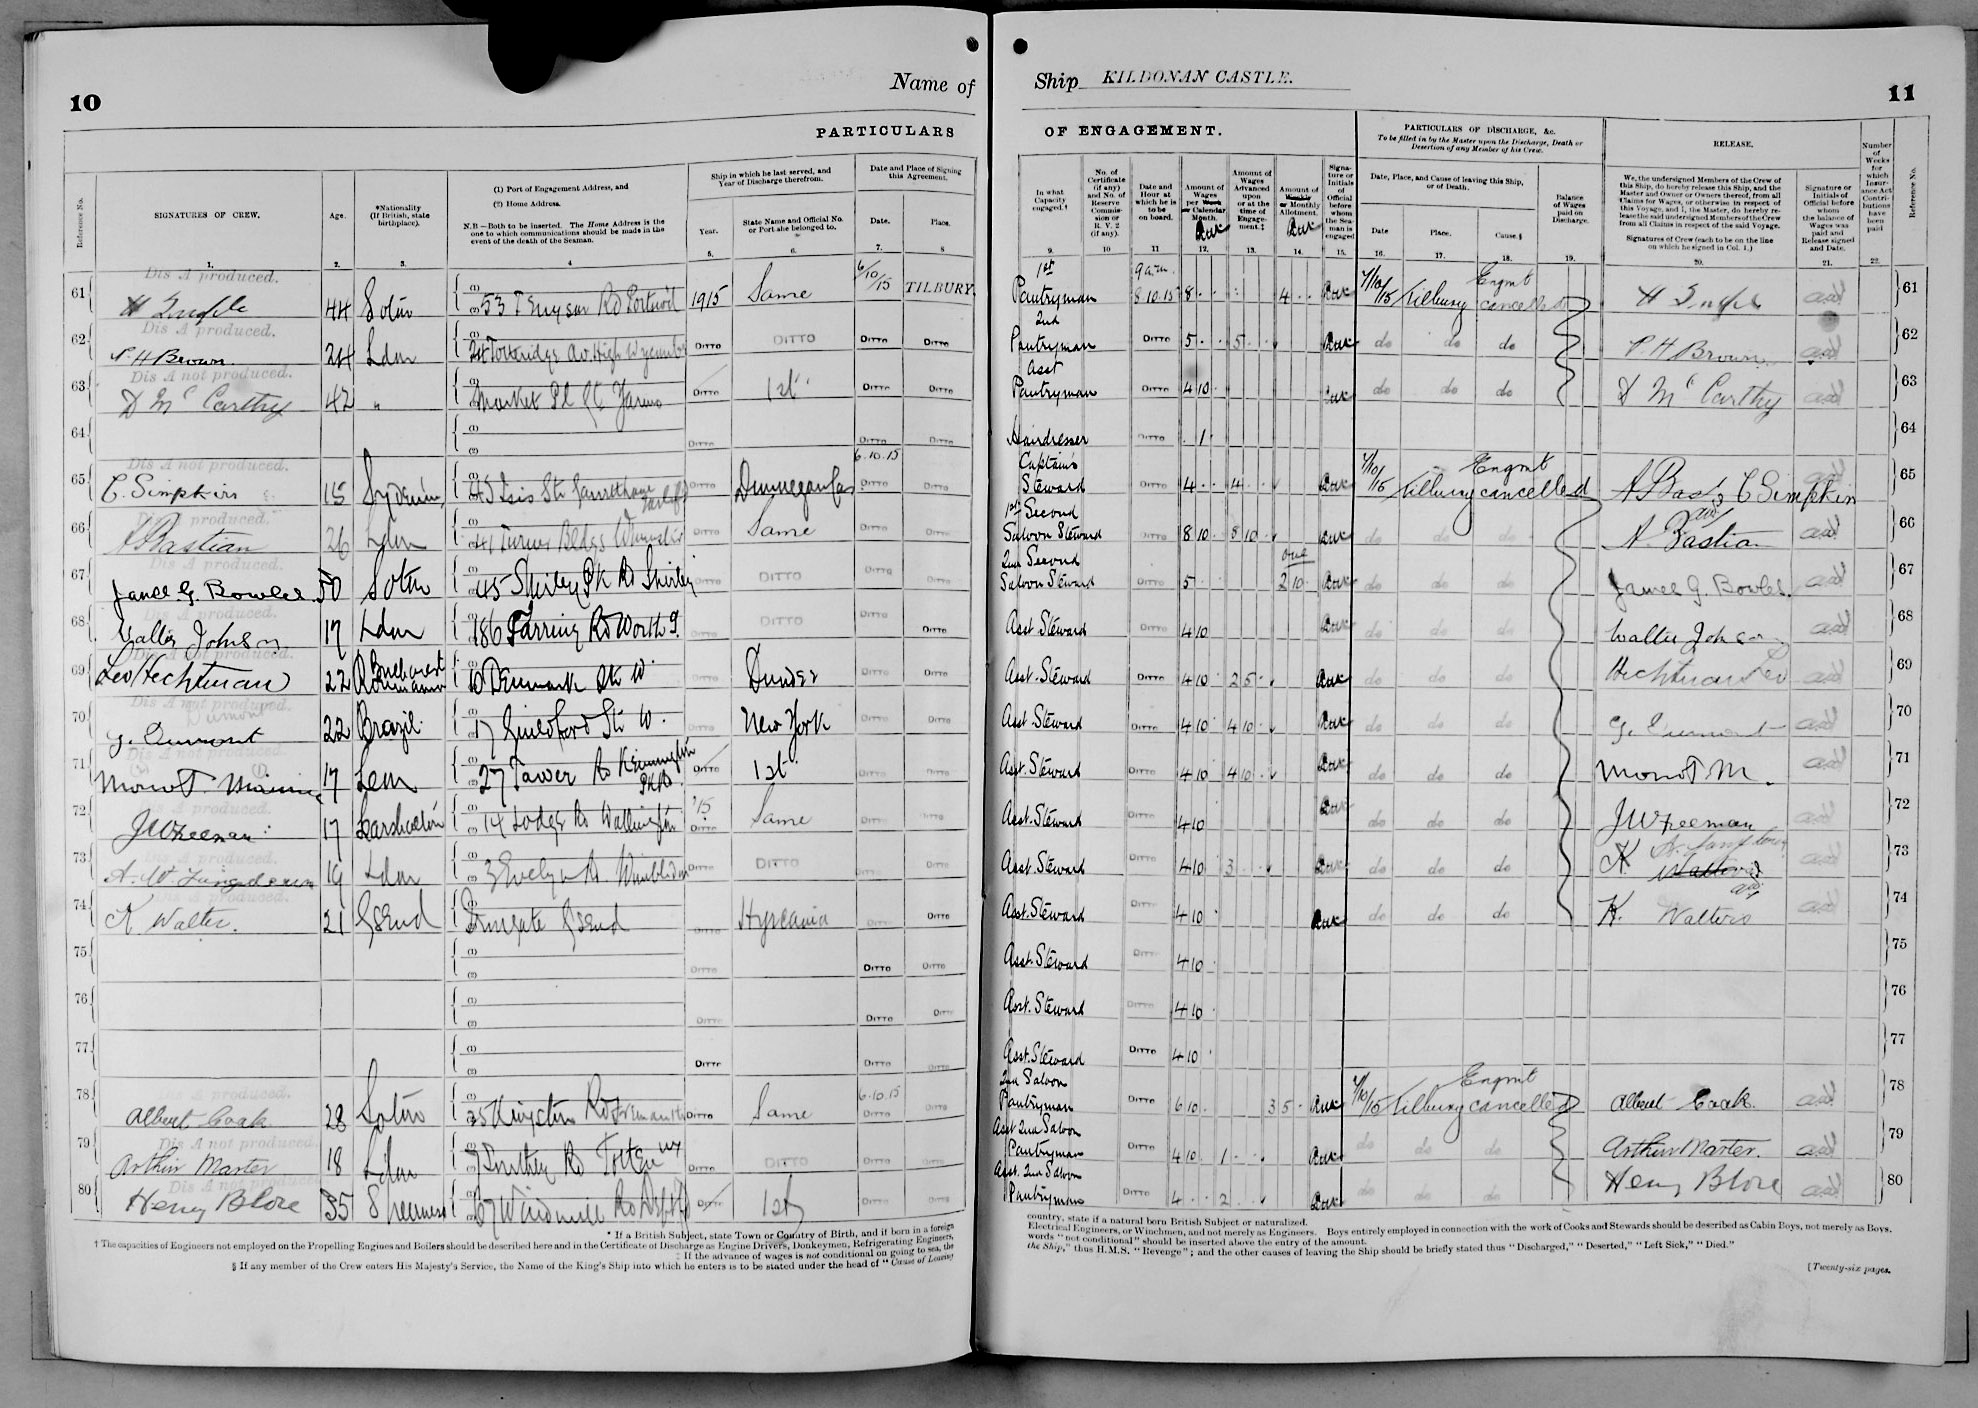 10
Name of
PARTICULARS
Reference No.
SIGNATURES OF CREW.
Age.
*Nationality (If British, state birthplace).
(1) Port of Engagement Address, and
(2) Home Address.
N.B—Both to be inserted. The Home Address is the one to which communications should be made in the event of the death of the Seaman.
Ship in which he last served, and Year of Discharge therefrom.
Year.
State Name and Official No. or Port she belonged to.
Date and Place of Signing this Agreement.
Date.
Place.
1. 2. 3. 4 5. 6. 7. 8
Dis A produced.
61 H 44 Soton 53 Rd 1915 Same 6/10/15 TILBURY
Dis A produced.
62 P. H Brown 24 Ldn Totteridge Av. High Wycombe DITTO DITTO DITTO DITTO
Dis A not produced.
63 D McCarthy 42 " Market Pl DITTO 1st DITTO DITTO
64 DITTO DITTO DITTO
Dis A not produced.
65 C. Simpkin 18 Sydenham 45 Isis St DITTO Dunnegan Cas 6.10.15 DITTO DITTO
Dis A produced.
66 A Bastian 26 Ldn 41 Turner Bldgs DITTO Same DITTO DITTO
Dis A produced.
67 James. G. Bowles 50 Soton 45 Shirley Pk Rd Shirley DITTO DITTO DITTO DITTO
Dis A produced.
68 Walter Johnson 17 Ldn 186 Tarring Rd Worthg. DITTO DITTO DITTO DITTO
Dis A not produced.
69 Leo Hechtman 22 Bucharest Roumania 10 Denmark St W. DITTO Dundee DITTO DITTO
Dis A not produced.
Dumont
70 G. Dumont 22 Brazil 17 Guildford St. W. DITTO New York DITTO DITTO
Dis A not produced.
71 Monot 17 27 Tower Rd Kennington Pk Rd DITTO 1st DITTO DITTO
Dis A produced.
72 J W Freeman 17 Carshalton 14 Lodge Rd Wallington '15 DITTO Same DITTO DITTO
Dis A produced.
73 A. W 19 Ldn 3 Evelyn Rd Wimbledon DITTO DITTO DITTO DITTO
Dis A produced.
74 K Walter. 21 GSend GSend DITTO Hyrcania DITTO DITTO
75 DITTO DITTO DITTO
76 DITTO DITTO DITTO
77 DITTO DITTO DITTO
Dis A produced.
78 Albert Cook 28 Soton 35 Kingston Rd DITTO Same 6.10.15 DITTO DITTO
Dis A not produced.
79 Arthur Marter 18 Ldn Rd Totten DITTO DITTO DITTO DITTO
Dis A not produced.
80 Henry Blore 35 Sheerness 67 Windmill Rd DITTO 1st DITTO DITTO
* If a British Subject, state Town or Country of Birth, and if born in a foreign
† The capacities of Engineers not employed on the Propelling Engines and Boilers should be described here and in the Certificate of Discharge as Engine Drivers, Donkeymen, Refrigerating Engineers,
‡ If the advance of wages is not conditional on going to sea, the
§ If any member of the Crew enters His Majesty's Service, the Name of the King's Ship into which he enters is to be stated under the head of "Cause of Leaving
Ship KILDONAN CASTLE.
11
OF ENGAGEMENT.
PARTICULARS OF DISCHARGE, &c.
To be filled in by the Master upon the Discharge, Death or Desertion of any Member of his Crew.
RELEASE.
In what Capacity engaged.†
No. of Certificate (if any) and No. of Reserve Commission or R. V. 2 (if any).
Date and Hour at which he is to be on board.
Amount of Wages per Week or Calendar Month.
Amount of Wages Advanced upon or at the time of Engagement.‡
Amount of Weekly or Monthly Allotment.
Signature or Initials of Official before whom the Seaman is engaged
Date, Place, and Cause of leaving this Ship, or of Death.
Date
Place.
Cause.§
Balance of Wages paid on Discharge.
We, the undersigned Members of the Crew of this Ship, do hereby release this Ship, and the Master and Owner or Owners thereof, from all Claims for Wages, or otherwise in respect of this Voyage, and I, the Master, do hereby release the said undersigned Members of the Crew from all Claims in respect of the said Voyage.
Signatures of Crew (each to be on the line on which he signed in Col. 1.)
Signature or Initials of Official before whom the balance of Wages was paid and Release signed and Date.
Number of Weeks for which Insurance Act Contributions have been paid
Reference No.
9. 10 11 12. 13. 14. 15. 16. 17. 18. 19. 20. 21. 22.
1st Pantryman 9 a.m. 8.10.15 8 . . 4 . . 7/10/15 Tilbury Engmt cancelled H 61
2nd Pantryman DITTO 5 . . 5 . . do do do P. H Brown 62
Asst Pantryman DITTO 4 10 do do do D McCarthy 63
Hairdresser DITTO . 1 . 64
Captain's Steward DITTO 4 . . 4 . . 7/10/15 Tilbury Engmt cancelled A Bast C Simpkin 65
1st Second Saloon Steward DITTO 8 10 . 8 10 . do do do A. Bastian 66
2nd Second Saloon Steward DITTO 5 . one 2 10 . do do do James G. Bowles. 67
Asst. Steward DITTO 4 10 do do do Walter Johnson 68
Asst. Steward DITTO 4 10 . 2 5 . do do do Hechtman Leo 69
Asst. Steward DITTO 4 10 . 4 10 . do do do G. Dumont 70
Asst. Steward DITTO 4 10 4 10 . do do do Monot M. 71
Asst. Steward DITTO 4 10 do do do J W Freeman 72
Asst. Steward DITTO 4 10 3 . . do do do K Walters 73
Asst. Steward DITTO 4 10 . do do do K. Walters 74
Asst. Steward DITTO 4 10 75
Asst. Steward DITTO 4 10 76
Asst. Steward DITTO 4 10 . 77
2nd Saloon Pantryman DITTO 6 10 . 3 5 . 7/10/15 Tilbury Engmt cancelled Albert Cook. 78
Asst 2nd Saloon Pantryman DITTO 4 10 . 1 . . do do do Arthur Marter. 79
Asst. 2nd Saloon Pantryman DITTO 4 . . 2 . . do do do Henry Blore 80
country, state if a natural born British Subject or naturalized.
Electrical Engineers, or Winchmen, and not merely as Engineers. Boys entirely employed in connection with the work of Cooks and Stewards should be described as Cabin Boys, not merely as Boys.
words "not conditional" should be inserted above the entry of the amount.
the Ship," thus H.M.S. "Revenge"; and the other causes of leaving the Ship should be briefly stated thus "Discharged," "Deserted," "Left Sick," "Died."
[Twenty-six pages.